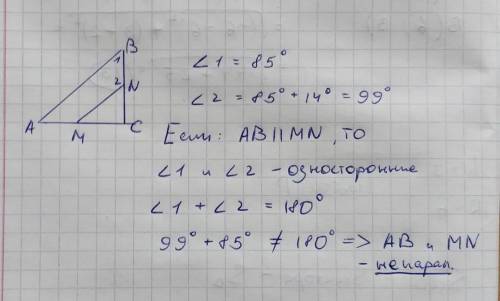 B
1
2
N
A
M
C
∠1 = 85°
∠2 = 85° + 14° = 99°
Если: AB || MN, то
∠1 и ∠2 - односторонние
∠1 + ∠2 = 180°
99° + 85° ≠ 180° => AB и MN
- непарал.